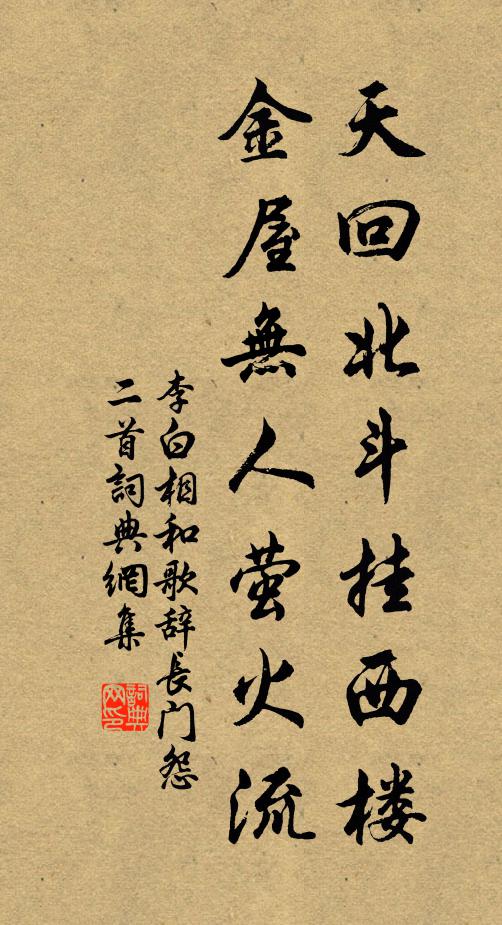 天回北斗挂西楼
金屋無人萤火流
李白相和歌辞長门怨
二首詞典網集
詞典网印